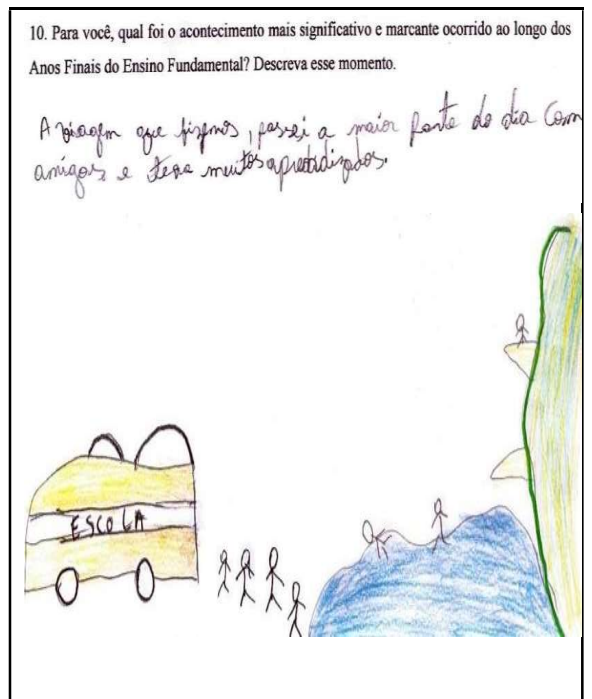 10. Para você, qual foi o acontecimento mais significativo e marcante ocorrido ao longo dos
Anos Finais do Ensino Fundamental? Descreva esse momento.
A viagem que fizemos, passei a maior parte do dia com
amigos e teve muitos
ESCOLA